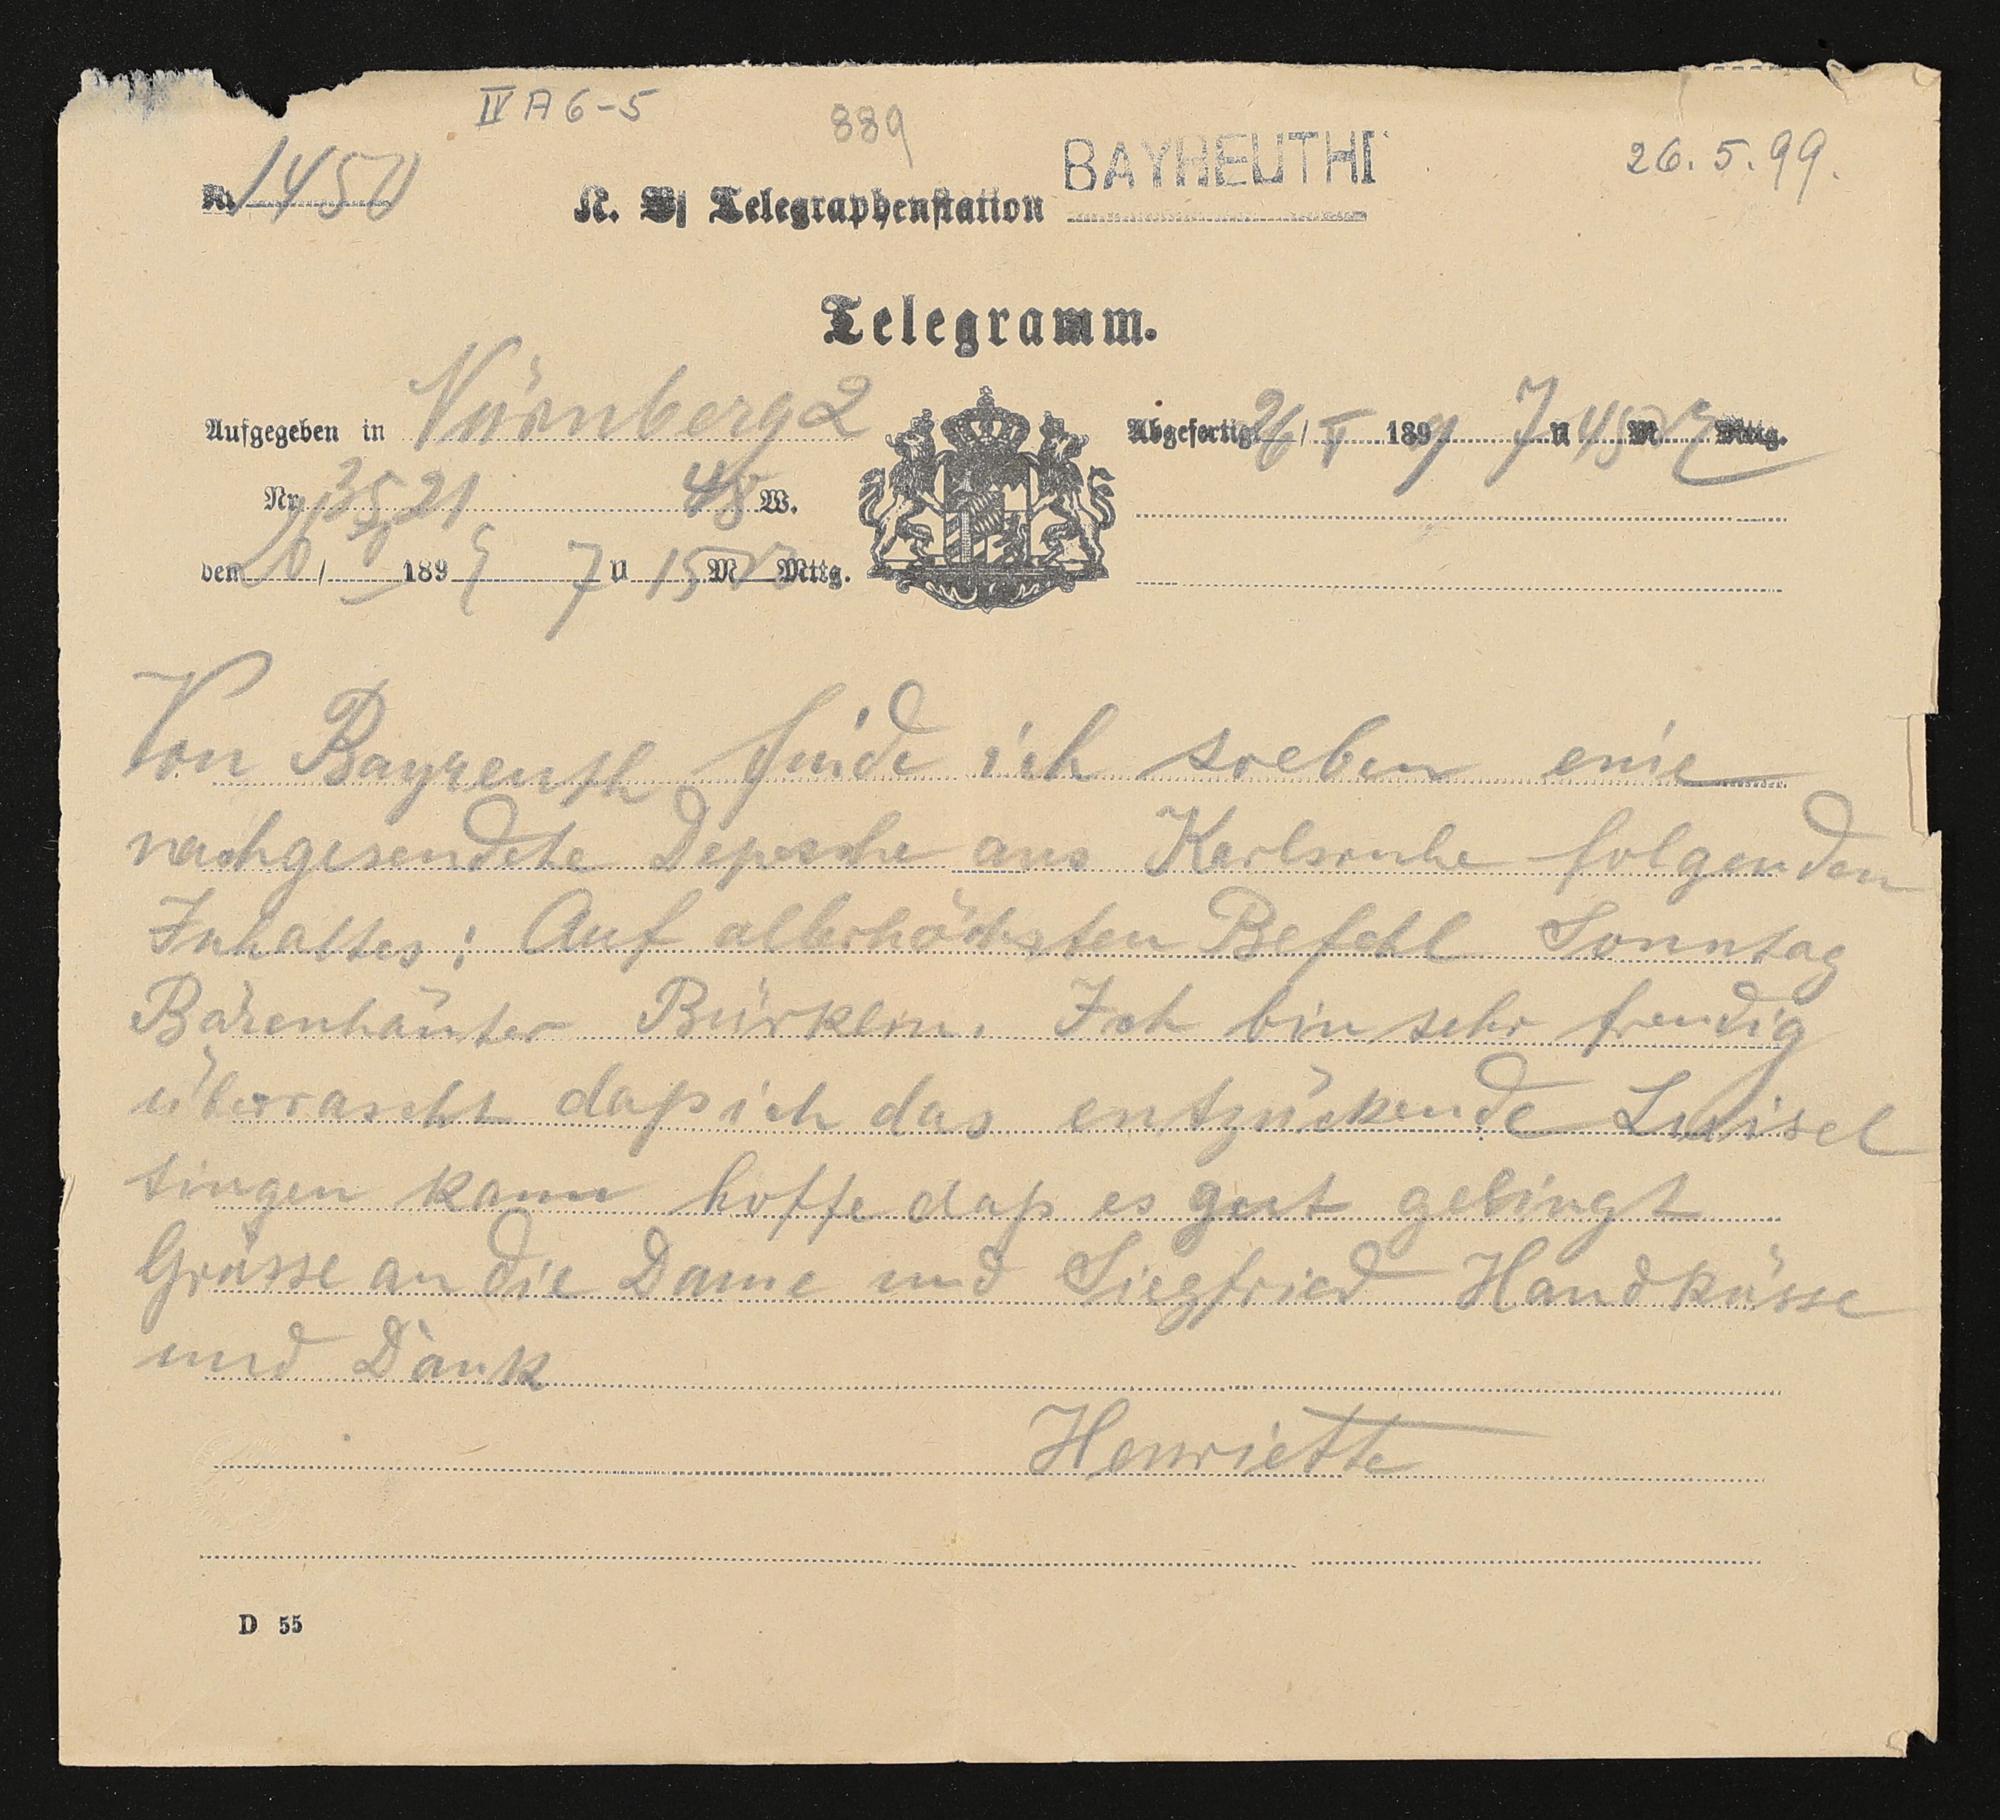 IV A 6-5
889
26.5.99.
Nr. 1450
K. B. Telegraphenstation BAYREUTH
Telegramm.
Aufgegeben in Nürnberg 2
Abgefertigt 26/V 1899 7 U 45 M Mttg.
Nr. 3521 48 W.
den 26/5 1899 7 U 15 M Mttg.
Von Bayreuth finde ich soeben eine
nachgesendete Depesche aus Karlsruhe folgenden
Inhaltes: Auf allerhöchsten Befehl Sonntag
Bärenhäuter Bürklin. Ich bin sehr freudig
überrascht daß ich das entzückende Luisel
singen kann hoffe daß es gut gelingt
Grüsse an die Dame und Siegfried Handküsse
und Dank
Henriette
D 55